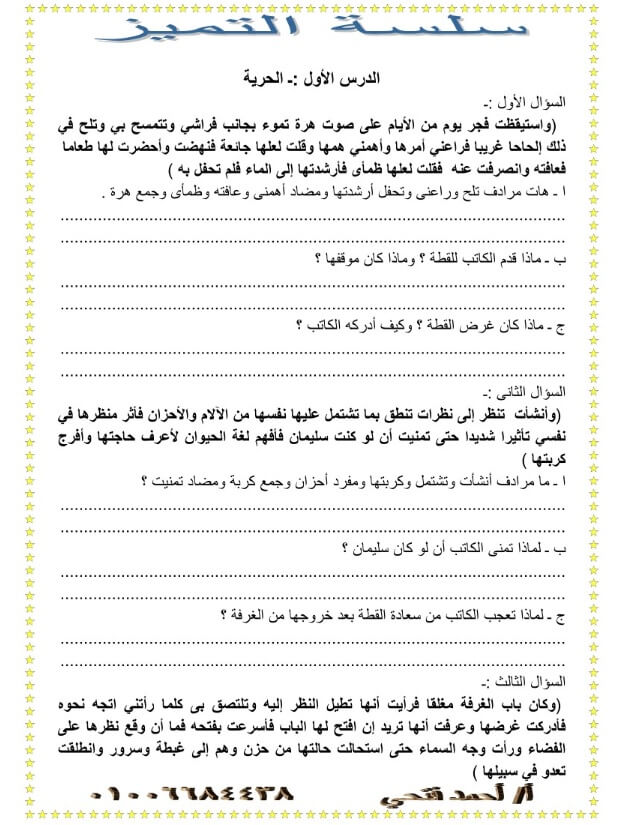 سلسة التميز
الدرس الأول :ـ الحرية
السؤال الأول :ـ
(واستيقظت فجر يوم من الأيام على صوت هرة تموء بجانب فراشي وتتمسح بي وتلح في
ذلك إلحاحا غريبا فراعني أمرها وأهمني همها وقلت لعلها جائعة فنهضت وأحضرت لها طعاما
فعافته وانصرفت عنه فقلت لعلها ظمأى فأرشدتها إلى الماء فلم تحفل به )
ا ـ هات مرادف تلح وراعنى وتحفل أرشدتها ومضاد أهمنى وعافته وظمأى وجمع هرة .
................................................................................
................................................................................
ب ـ ماذا قدم الكاتب للقطة ؟ وماذا كان موقفها ؟
................................................................................
................................................................................
ج ـ ماذا كان غرض القطة ؟ وكيف أدركه الكاتب ؟
................................................................................
................................................................................
السؤال الثانى :ـ
(وأنشأت تنظر إلى نظرات تنطق بما تشتمل عليها نفسها من الآلام والأحزان فأثر منظرها في
نفسي تأثيرا شديدا حتى تمنيت أن لو كنت سليمان فأفهم لغة الحيوان لأعرف حاجتها وأفرج
كربتها )
ا ـ ما مرادف أنشأت وتشتمل وكربتها ومفرد أحزان وجمع كربة ومضاد تمنيت ؟
................................................................................
................................................................................
ب ـ لماذا تمنى الكاتب أن لو كان سليمان ؟
................................................................................
................................................................................
ج ـ لماذا تعجب الكاتب من سعادة القطة بعد خروجها من الغرفة ؟
................................................................................
................................................................................
السؤال الثالث :ـ
(وكان باب الغرفة مغلقا فرأيت أنها تطيل النظر إليه وتلتصق بى كلما رأتني اتجه نحوه
فأدركت غرضها وعرفت أنها تريد إن افتح لها الباب فأسرعت بفتحه فما أن وقع نظرها على
الفضاء ورأت وجه السماء حتى استحالت حالتها من حزن وهم إلى غبطة وسرور وانطلقت
تعدو في سبيلها )
أ/ أحمد فتحي ٠١٠٠٦٦٨٤٤٣٨